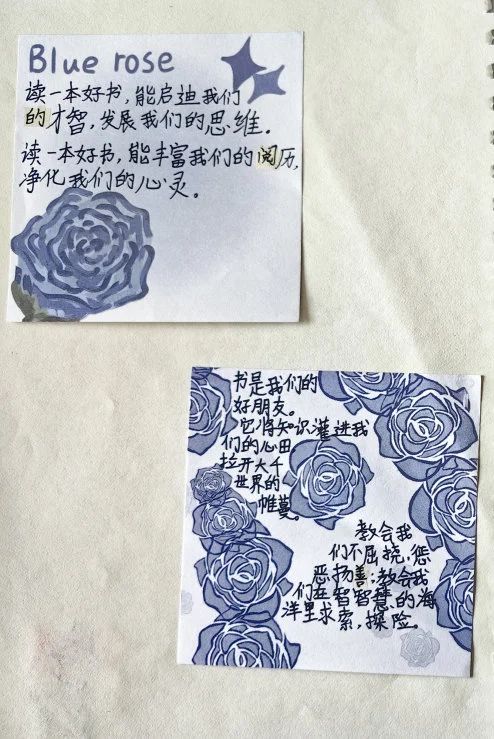 Blue rose
读一本好书,能启迪我们
的才智,发展我们的思维。
读一本好书,能丰富我们的阅历,
净化我们的心灵。
书是我们的
好朋友。
它将知识灌进我
们的心田
拉开大千
世界的
帷蔓。
教会我
们不屈挠,惩
恶扬善;教会我
们在智智慧的海
洋里求索,探险。